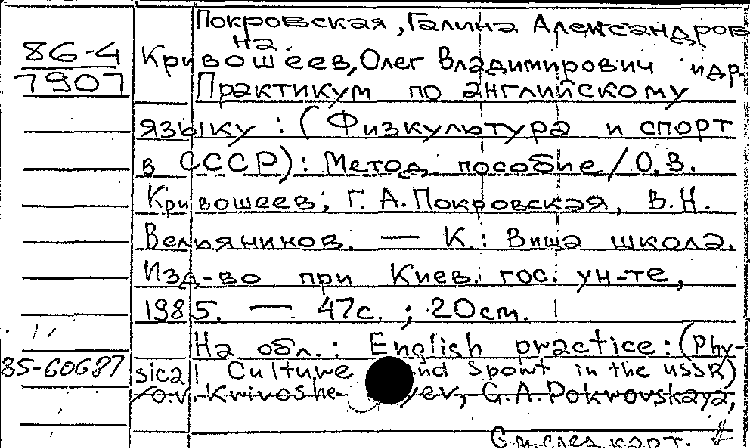 Покровская, Галина Александров
на
86-4
7907
Кривошеев, Олег Владимирович и др.
Практикум по английскому
языку : (Физкультура и спорт
в СССР) : Метод. пособие / О.В.
Кривошеев, Г. А. Покровская, В.Н.
Вельяников. — К. : Вища школа.
Изд-во при Киев. гос. ун-те,
1985. — 47с. ; 20 см.
На обл. : English practice : (Phy-
85-60687
sical Culture and Sport in the USSR)
/O.V. Krivoshe yev, G.A. Pokrovskaya,
См. след. карт.